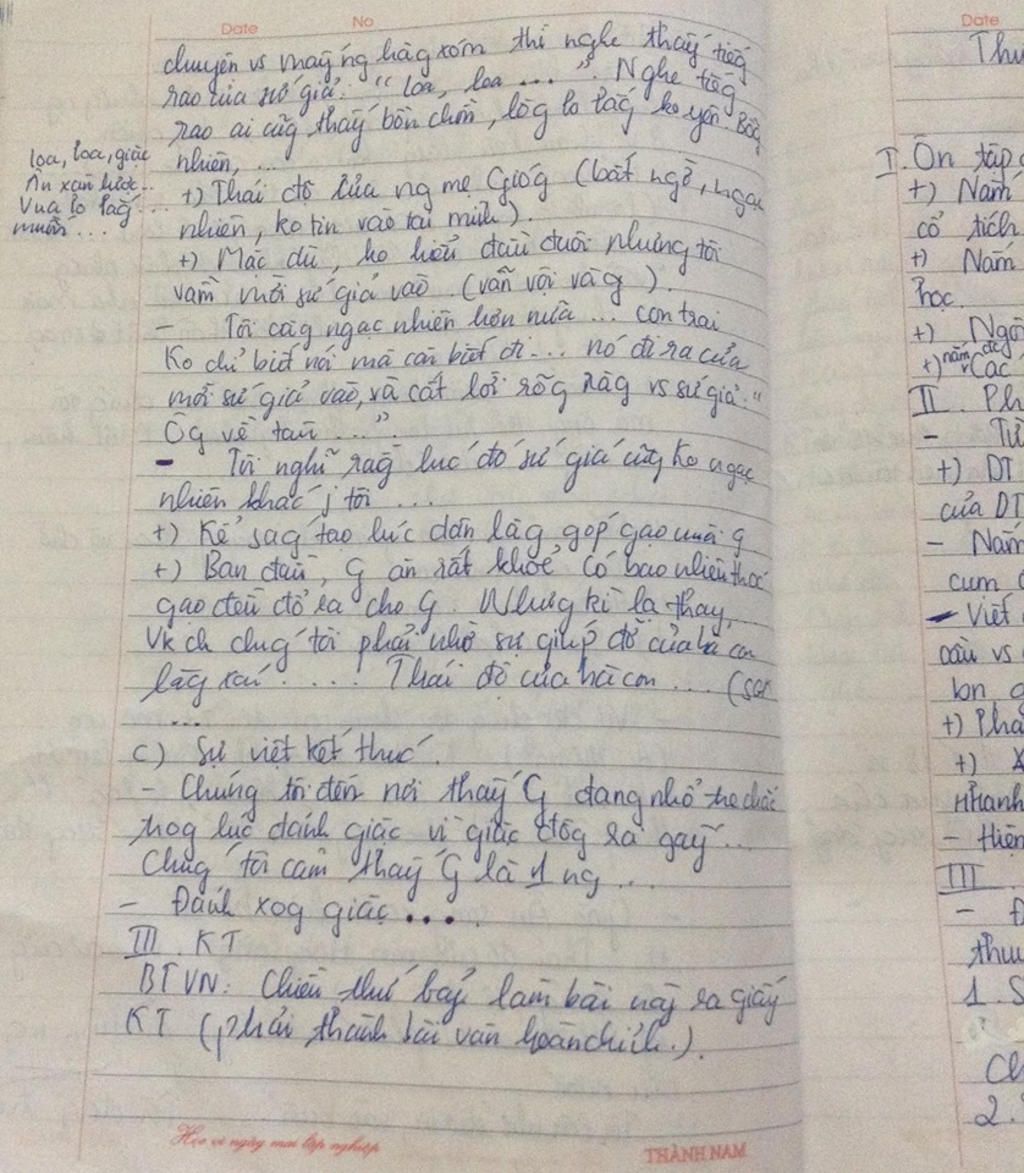 Date No
chuyện vs mấy ng hàg xóm thì nghe thấy tiếg
rao của sứ giả: "loa, loa ...". Nghe tiếg
rao ai cũg thấy bồn chồn, lòg lo lắg ko yên. Bỗg
nhiên, ...
loa, loa, giặc
Ân xâm lược...
Vua lo lắg...
muốn...
+) Thái độ của ng mẹ Gióg (bất ngờ, ngạc
nhiên, ko tin vào tai mình).
+) Mặc dù, ko hiểu đầu đuôi nhưng tôi
vẫn mời sứ giả vào. (vẫn vội vàg).
- Tôi càg ngạc nhiên hơn nữa ... con trai
Ko chỉ biết nói mà còn biết đi... nó đi ra cửa
mời sứ giả vào, và cất lời rõg ràg vs sứ giả: "
Ôg về tâu ...".
- Tôi nghĩ rằg lúc đó sứ giả cũg ko ngạc
nhiên khác j tôi ...
+) Kể ság tạo lúc dân làg góp gạo nuôi g
+) Ban đầu, G ăn rất khỏe có bao nhiêu thóc
gạo đều đổ ra cho G. Nhưg kì lạ thay,
Vk ck chúg tôi phải nhờ sự giúp đỡ của bà con
làg xóm ....! Thái độ của bà con ... (SGK
...
c) Sự việt kết thúc.
- Chúng tôi đến nơi thấy G đang nhổ tre chắc
trog lúc đánh giặc vì giặc đôg ra gãy..
Chúg tôi cảm thấy G là 1 ng ...
- Đánh xog giặc...
III. KT
BTVN: Chiều thứ bảy làm bài này ra giấy
KT (phải thành bài văn hoàn chỉnh.).
Học vì ngày mai lập nghiệp THÀNH NAM
Date
I. Ôn tập
+) Nắm
cổ tích
+) Nắm
học.
+) Ngôi
+) nắm đc Các
II. Ph
- Từ
+) DT
của DT
- Nắm
cụm
- Viết
câu vs
+) Phâ
+)
nhanh
- Hiện
III
- Đ
1. S
2.